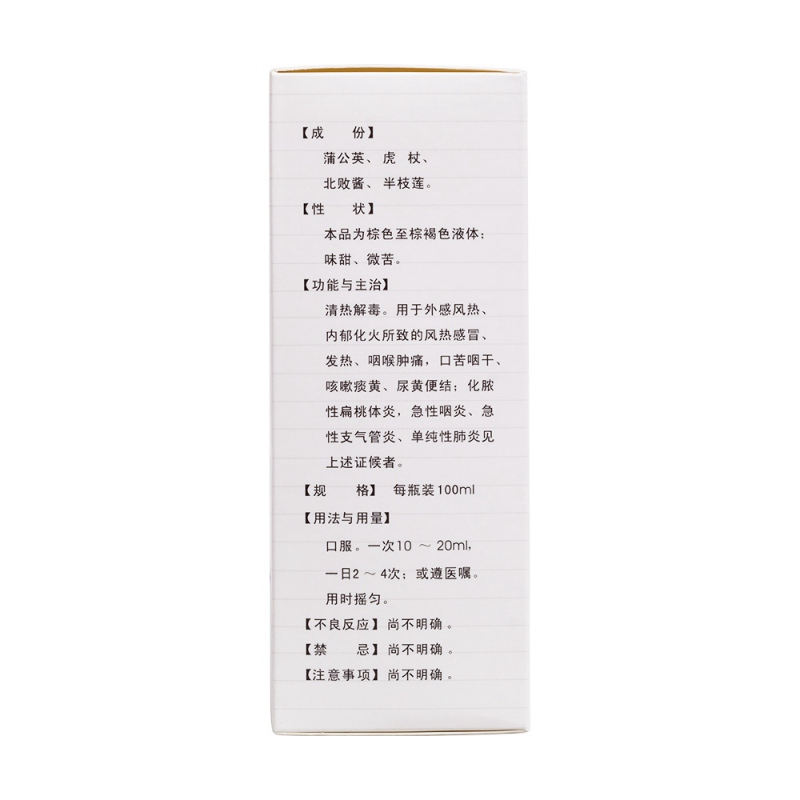 【成　份】
蒲公英、虎 杖、
北败酱、半枝莲。
【性　状】
本品为棕色至棕褐色液体；
味甜、微苦。
【功能与主治】
清热解毒。用于外感风热、
内郁化火所致的风热感冒、
发热、咽喉肿痛，口苦咽干、
咳嗽痰黄、尿黄便结；化脓
性扁桃体炎，急性咽炎、急
性支气管炎、单纯性肺炎见
上述证候者。
【规　格】 每瓶装100ml
【用法与用量】
口服。一次10 ～ 20ml，
一日2 ～ 4次；或遵医嘱。
用时摇匀。
【不良反应】尚不明确。
【禁　忌】尚不明确。
【注意事项】尚不明确。